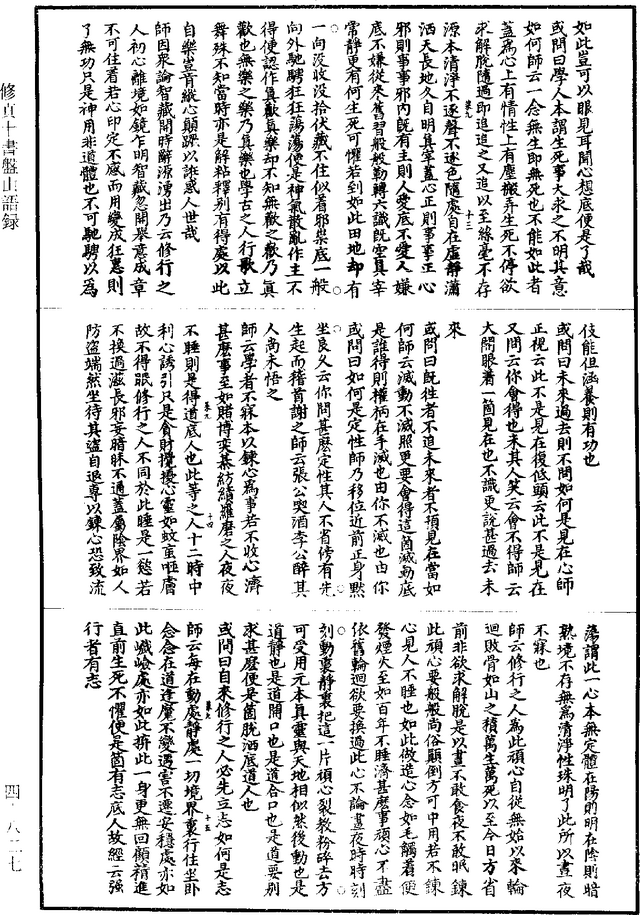 如此豈可以眼見耳聞心想底便是了哉
或問曰學人本謂生死事大求之不明其意
如何師云一念無生即無死也不能如此者
蓋爲心上有情性上有塵搬弄生死不停欲
求解脫隨過即追追之又追以至絲毫不存
源本清淨不逐聲不逐色隨處自在虛靜瀟
洒天長地久自明眞宰蓋心正則事事正心
邪則事事邪内既有主則人愛底不愛人嫌
底不嫌從來舊習般般勒轉六識既空眞宰
常靜更有何生死可懼若到如此田地却有
一向没收没拾伏藏不住似着邪祟底一般
向外馳騁狂狂蕩蕩便是神氣散亂作主不
得便認作眞歡眞樂却不知無歡之歡乃眞
歡也無樂之樂乃眞樂也學古之人行歌立
舞殊不知當時亦是解粘釋别有得處以此
自樂豈肯縱心顛蹶以誰惑人世哉
師因衆論智藏開時辭源湧出乃云修行之
人初心離境如鏡乍明智藏忽開舉意成章
不可住着若心印定不感而用變成狂慧則
了無功只是神用非道體也不可馳騁以爲
伎能但涵養則有功也
或問曰未來過去則不問如何是見在心師
正視云此不是見在復低頭云此不是見在
又問云你會得也未其人笑云會不得師云
大開眼着一箇見在也不識更說甚過去未
來
或問曰既往者不追未來者不預見在當如
何師云滅動不滅照更要會得這箇滅動底
是誰得則權柄在手滅也由你不滅也由你
或問曰如何是定性師乃移位近前正身默
坐良久云你問甚麼定性其人不省傍有先
生起而稽首謝之師云張公喫酒李公醉其
人尚未悟之
師云學者不寐本以鍊心爲事若不收心濟
甚麼事至如賭博奕棊紡績羅磨之人夜夜
不睡則是得道底人也此等之人十二時中
利心誘引只是貪財攪擾心靈如蚊䖟咂膚
故不得眠修行之人不同於此睡是一慾若
不換過滋長邪妄暗昧不通蓋屬陰界如人
防盜端然坐待其盜自退專以鍊心恐致流
蕩謂此一心本無定體在陽則明在陰則暗
熟境不存無爲清淨性珠明了此所以晝夜
不寐也
師云修行之人爲此頑心自從無始以來輪
迴敗骨如山之積萬生萬死以至今日方省
前非欲求解脫是以晝不敢食夜不敢眠鍊
此頑心要般般尚俗顛倒方可中用若不鍊
心見人不睡也如此做造心念如毛觸着便
發煙火至如百年不睡濟甚麼事頑心不盡
依舊輪迴欲要換過此心不論晝夜時時刻
刻動裏靜裏把這一片頑心裂教粉碎去方
可受用元本眞靈與天地相似然後動也是
道靜也是道開口也是道合口也是道要别
求甚麼便是箇脫洒底道人也
或問曰自來修行之人必先立志如何是志
師云每在動處靜處一切境界裏行住坐卧
念念在道逢魔不變遇害不遷安穩處亦如
此巇嶮處亦如此拚此一身更無回顧精進
直前生死不懼便是箇有志底人故經云强
行者有志
修眞十書盤山語録
四·八二七